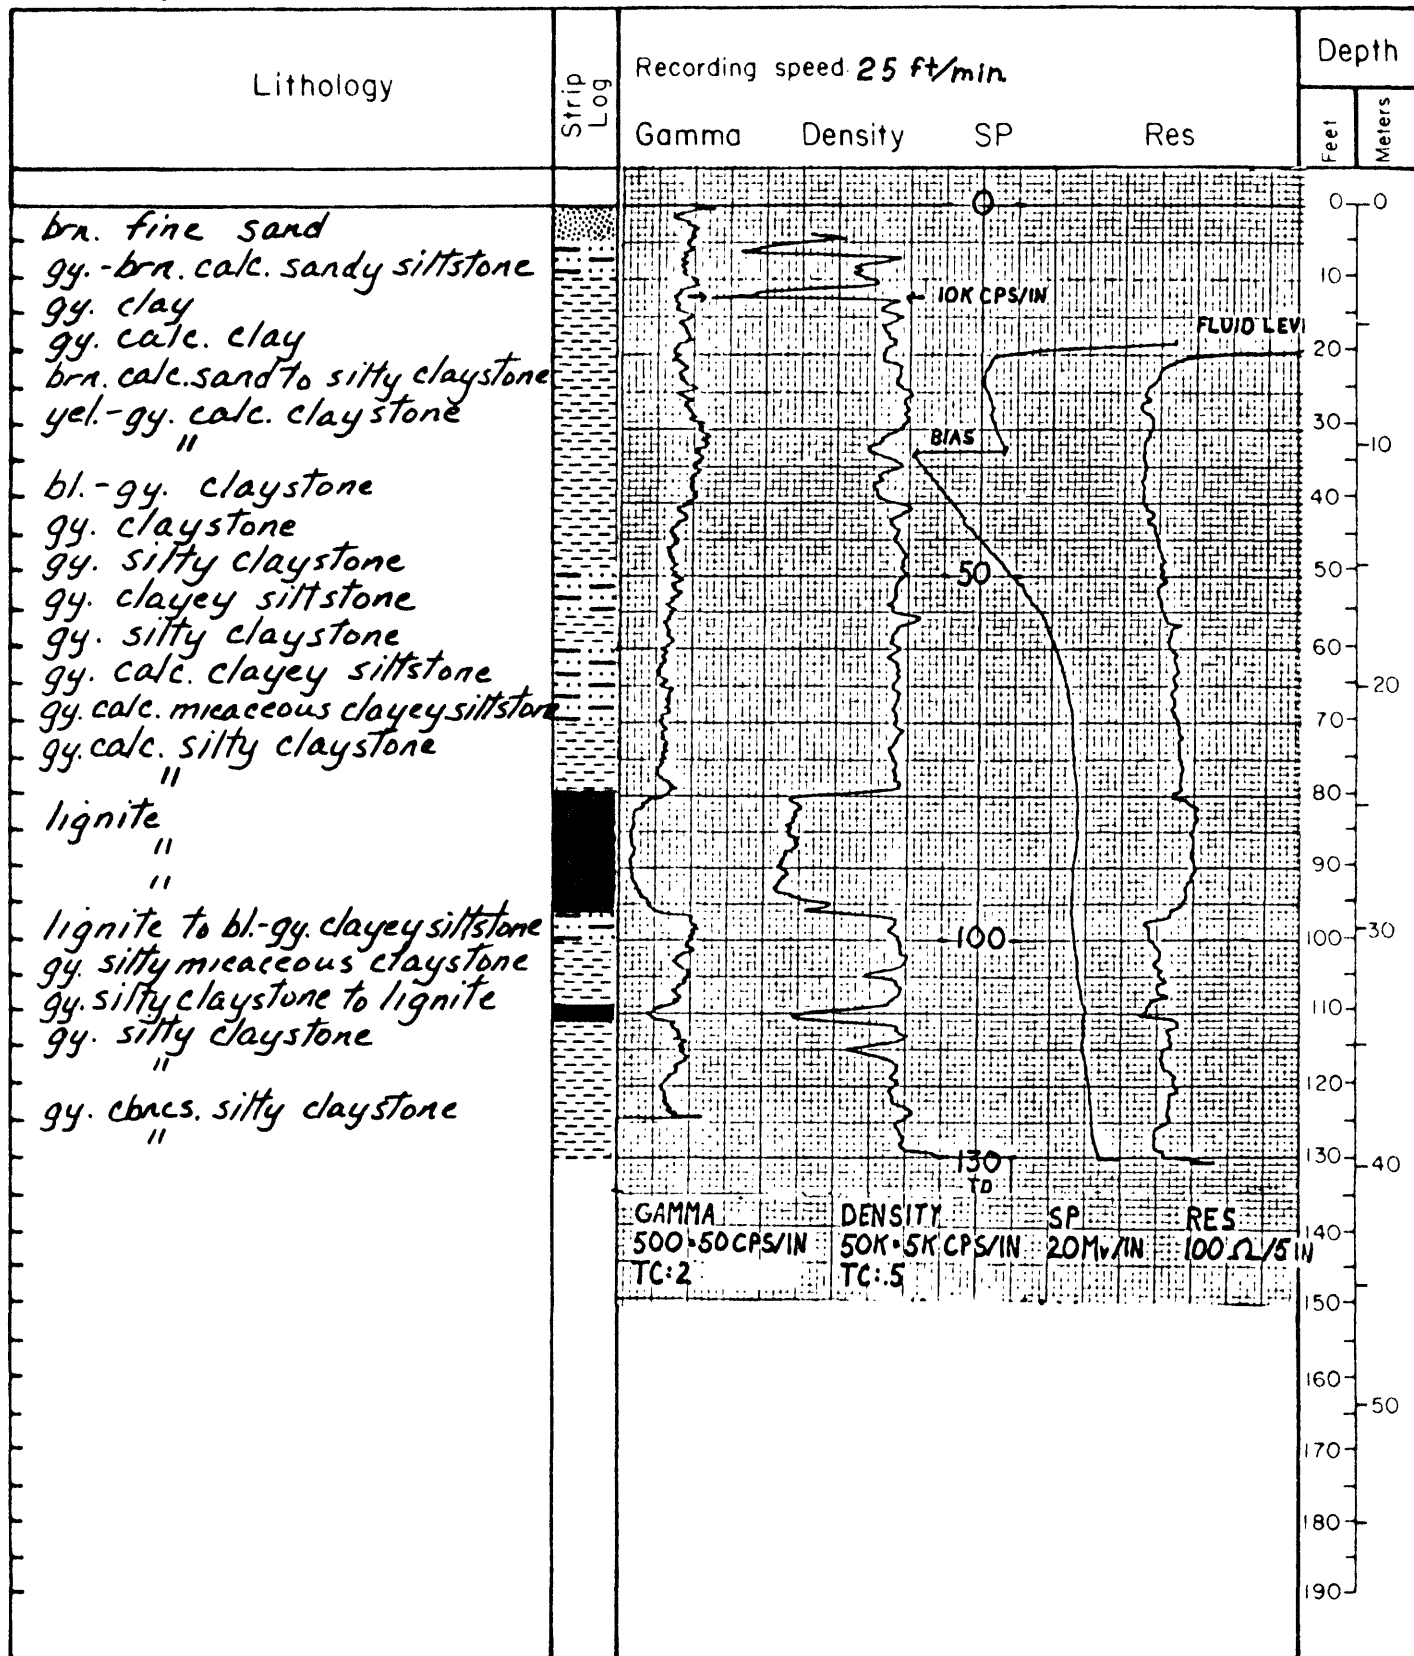 Lithology
Strip Log
Recording speed 25 ft/min
Gamma Density SP Res
Depth
Feet
Meters
brn. fine sand
gy.-brn. calc. sandy siltstone
gy. clay
gy. calc. clay
brn. calc. sand to silty claystone
yel.-gy. calc. claystone
"
bl.-gy. claystone
gy. claystone
gy. silty claystone
gy. clayey siltstone
gy. silty claystone
gy. calc. clayey siltstone
gy. calc. micaceous clayey siltstone
gy. calc. silty claystone
"
lignite
"
"
lignite to bl.-gy. clayey siltstone
gy. silty micaceous claystone
gy. silty claystone to lignite
gy. silty claystone
"
gy. cbncs. silty claystone
"
0
10K CPS/IN
FLUID LEV
BIAS
50
100
130
TD
GAMMA
500•50 CPS/IN
TC:2
DENSITY
50K•5K CPS/IN
TC:.5
SP
20 Mv/IN
RES
100 Ω/5 IN
0
10
20
30
40
50
60
70
80
90
100
110
120
130
140
150
160
170
180
190
0
10
20
30
40
50